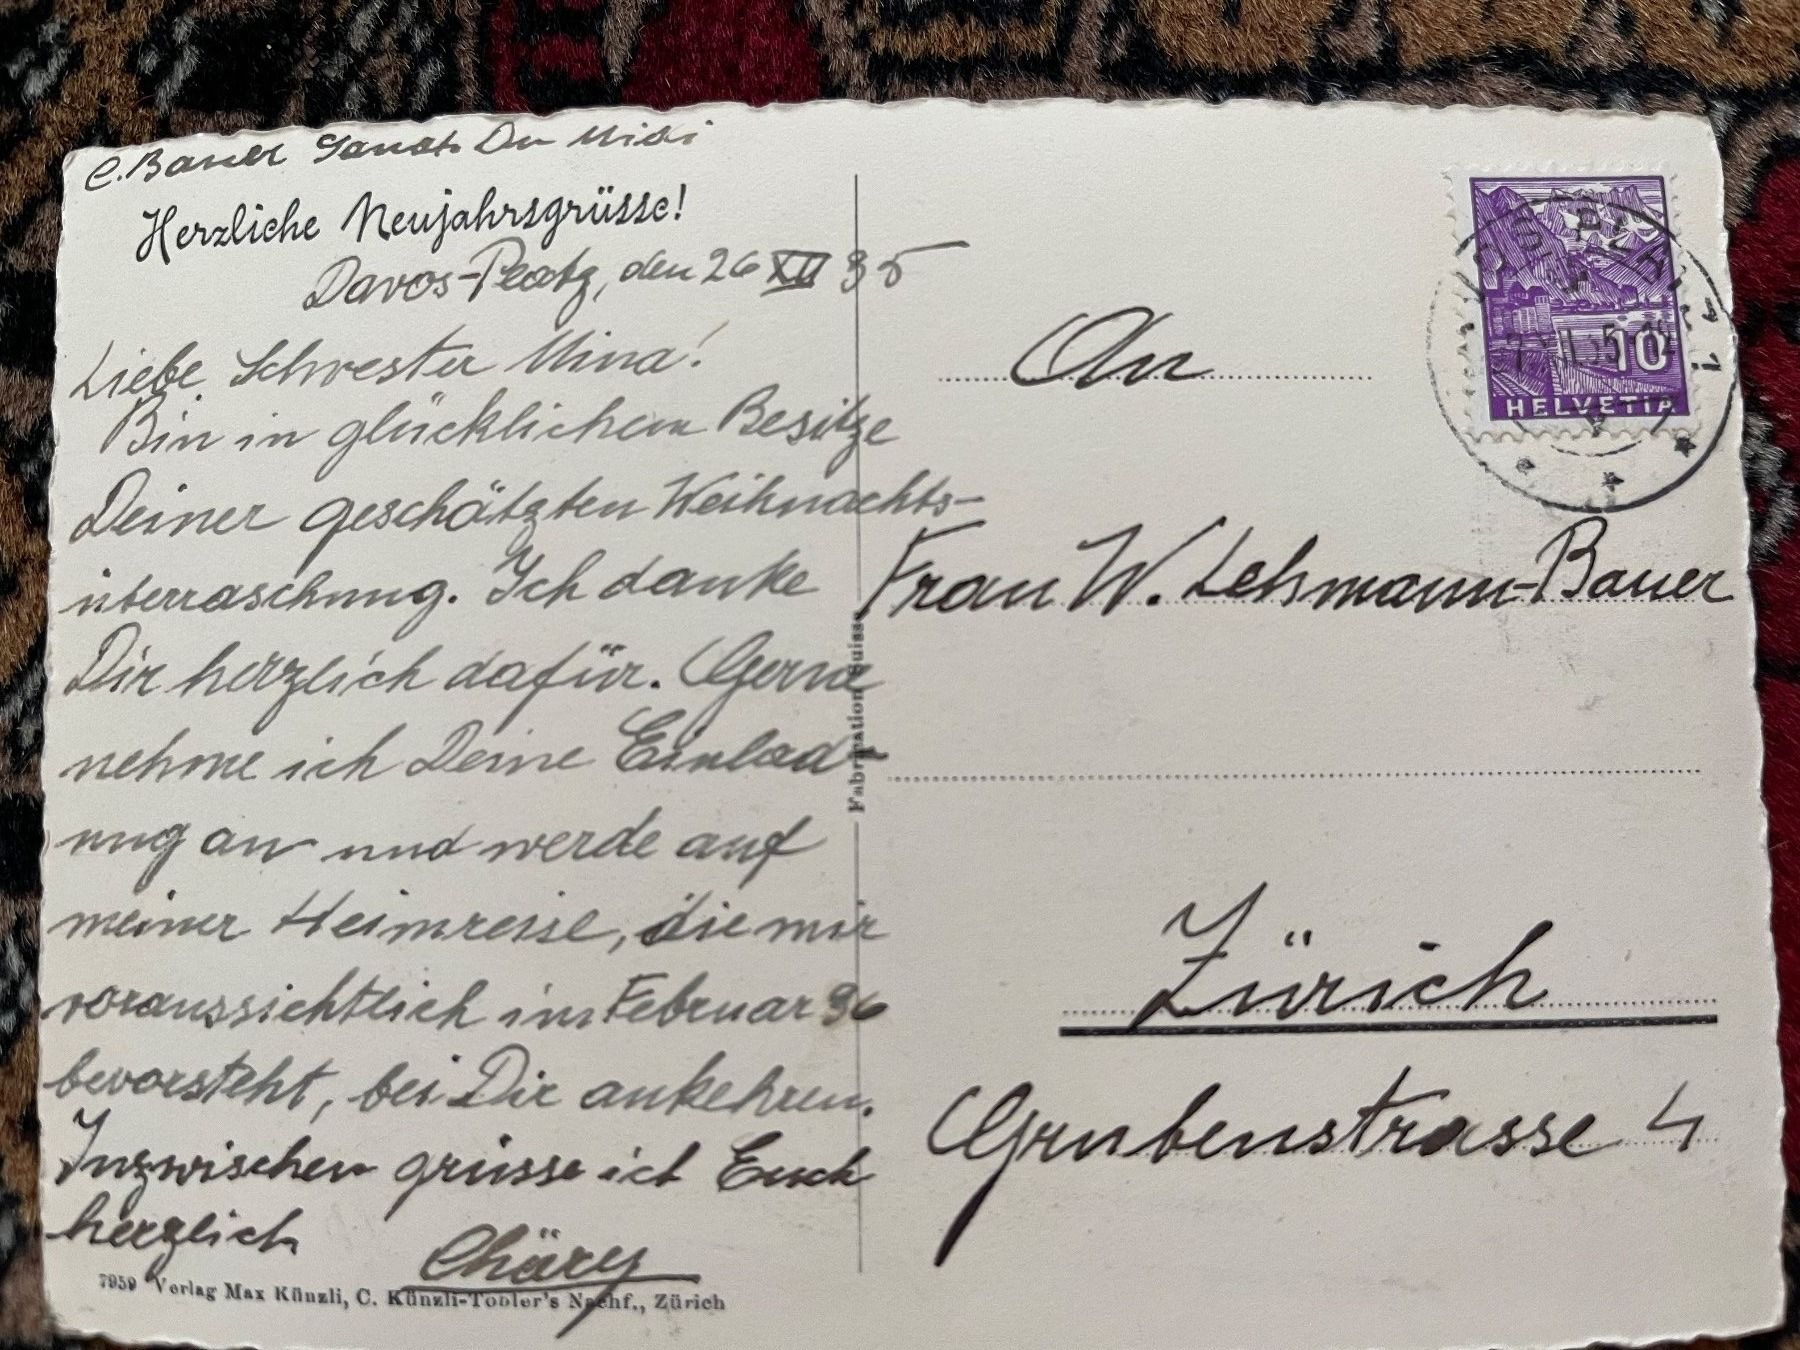 C. Bauer Sanat. Du Midi
Herzliche Neujahrsgrüsse!
Davos-Platz, den 26 XII 35
Liebe Schwester Mina!
Bin in glücklichem Besitze
Deiner geschätzten Weihnachts-
überraschung. Ich danke
Dir herzlich dafür. Gerne
nehme ich Deine Einlad-
ung an und werde auf
meiner Heimreise, die mir
voraussichtlich im Februar 36
bevorsteht, bei Dir ankehren.
Inzwischen grüsse ich Euch
herzlich
Chäry
7959 Verlag Max Künzli, C. Künzli-Tobler's Nachf., Zürich
Fabrication Suisse
10
HELVETIA
An
Frau W. Lehmann-Bauer
Zürich
Grubenstrasse 4